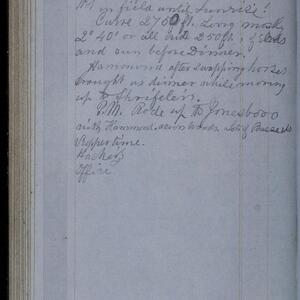 in field until Sunrise!
Curve 2750 ft. long mostly
2° 40' or all but 250 ft, of
and run before Dinner.
Hammond after swapping horses
brought us dinner while moving
up to
P.M. Rode up to Jonesboro
with Hammond
Supper time.
Hacker's
Office